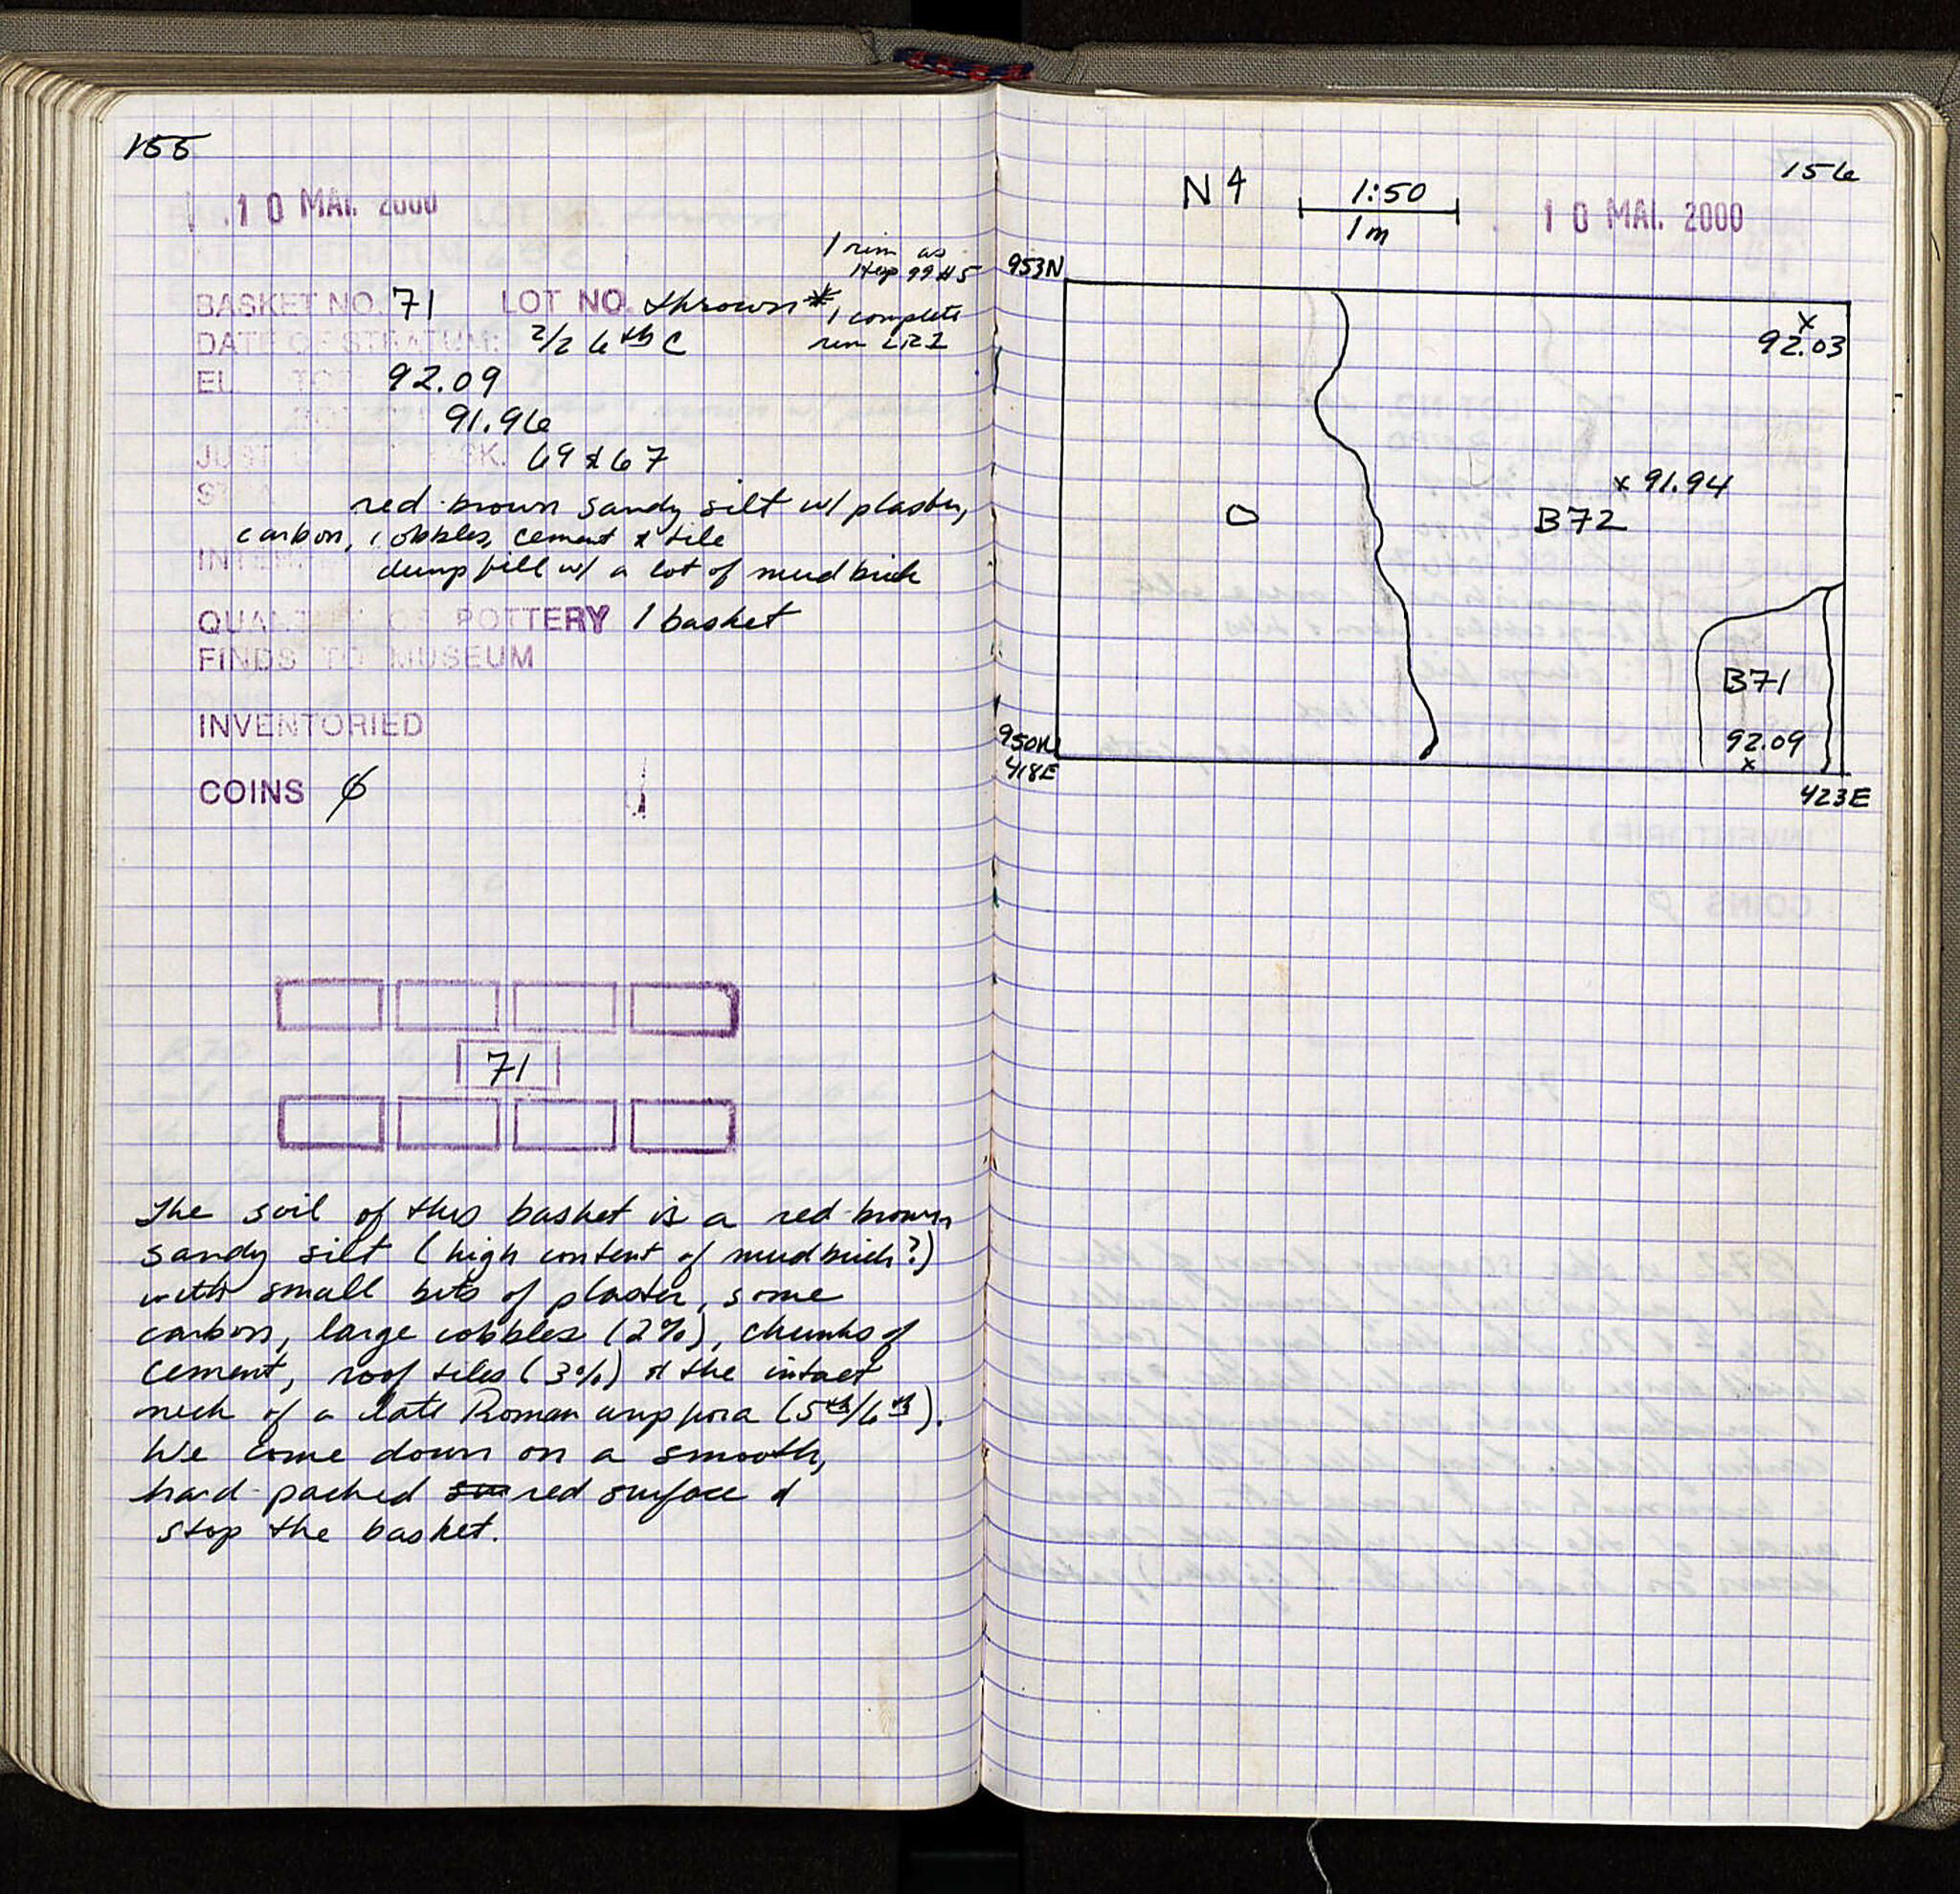 155
10 MAI. 2000
1 rim as
Hesp 99 #5
BASKET NO. 71 LOT NO. thrown *
1 complete
rim LR2
DATE OF STRATUM: 2/2 6th C
EL TOP 92.09
91.96
JUST SK. 69 & 67
red-brown sandy silt w/ plaster,
carbon, cobbles, cement & tile
dump fill w/ a lot of mudbrick
QUANTITY OF POTTERY 1 basket
FINDS TO MUSEUM
INVENTORIED
COINS ∅
71
The soil of this basket is a red-brown
sandy silt (high content of mudbrick?)
with small bits of plaster, some
carbon, large cobbles (2%), chunks of
cement, roof tiles (3%) & the intact
neck of a late Roman amphora (5th/6th).
We come down on a smooth,
hard-packed red surface &
stop the basket.
156
N 4
1:50
1 m
10 MAI. 2000
953N
x
92.03
x 91.94
B72
B71
92.09
x
950N
418E
423E